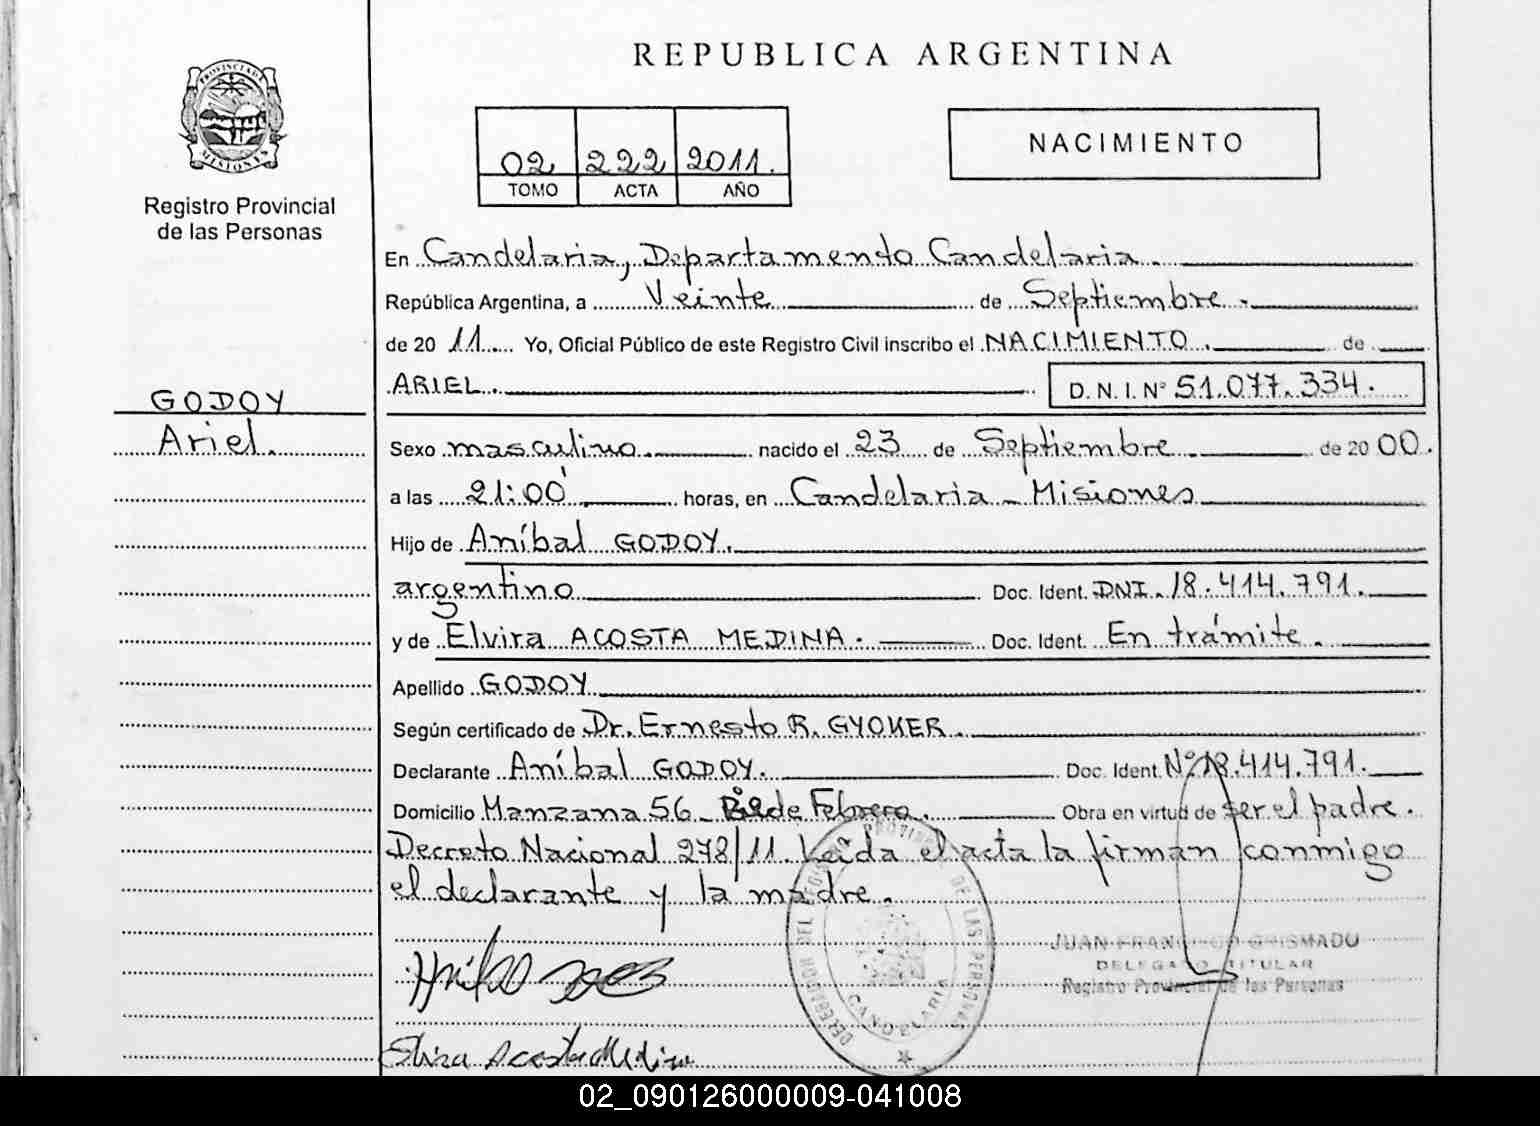 REPUBLICA ARGENTINA
PROVINCIA DE MISIONES
Registro Provincial
de las Personas
02 222 2011.
TOMO ACTA AÑO
NACIMIENTO
En Candelaria, Departamento Candelaria.
República Argentina, a Veinte de Septiembre.
de 20 11 Yo, Oficial Público de este Registro Civil inscribo el NACIMIENTO. de
ARIEL. D.N.I. Nº 51.077.334.
GODOY
Ariel.
Sexo masculino. nacido el 23 de Septiembre. de 2000.
a las 21:00' horas, en Candelaria - Misiones
Hijo de Aníbal GODOY.
argentino Doc. Ident. DNI. 18.414.791.
y de Elvira ACOSTA MEDINA. Doc. Ident. En trámite.
Apellido GODOY
Según certificado de Dr. Ernesto R. GYOKER.
Declarante Aníbal GODOY. Doc. Ident. Nº 18.414.791.
Domicilio Manzana 56 de Febrero. Obra en virtud de ser el padre.
Decreto Nacional 278/11. Leída el acta la firman conmigo
el declarante y la madre.
DEL REGISTRO PROVINCIAL DE LAS PERSONAS
CANDELARIA
JUAN FRANCISCO GRISMADO
DELEGADO TITULAR
Registro Provincial de las Personas
Acosta Medina
02_090126000009-041008